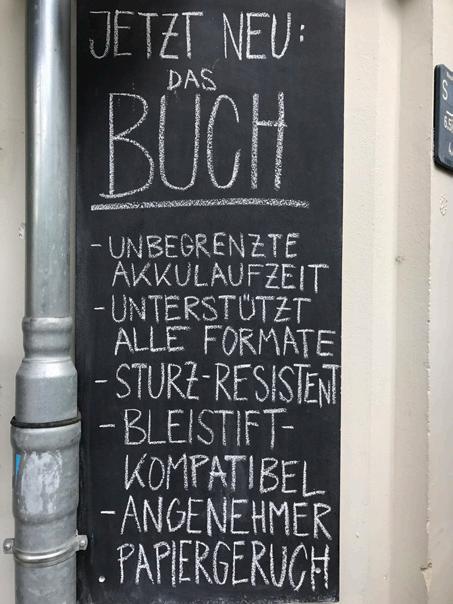 JETZT NEU:
DAS
BUCH
- UNBEGRENZTE
AKKULAUFZEIT
- UNTERSTÜTZT
ALLE FORMATE
- STURZ-RESISTENT
- BLEISTIFT-
KOMPATIBEL
- ANGENEHMER
PAPIERGERUCH
S